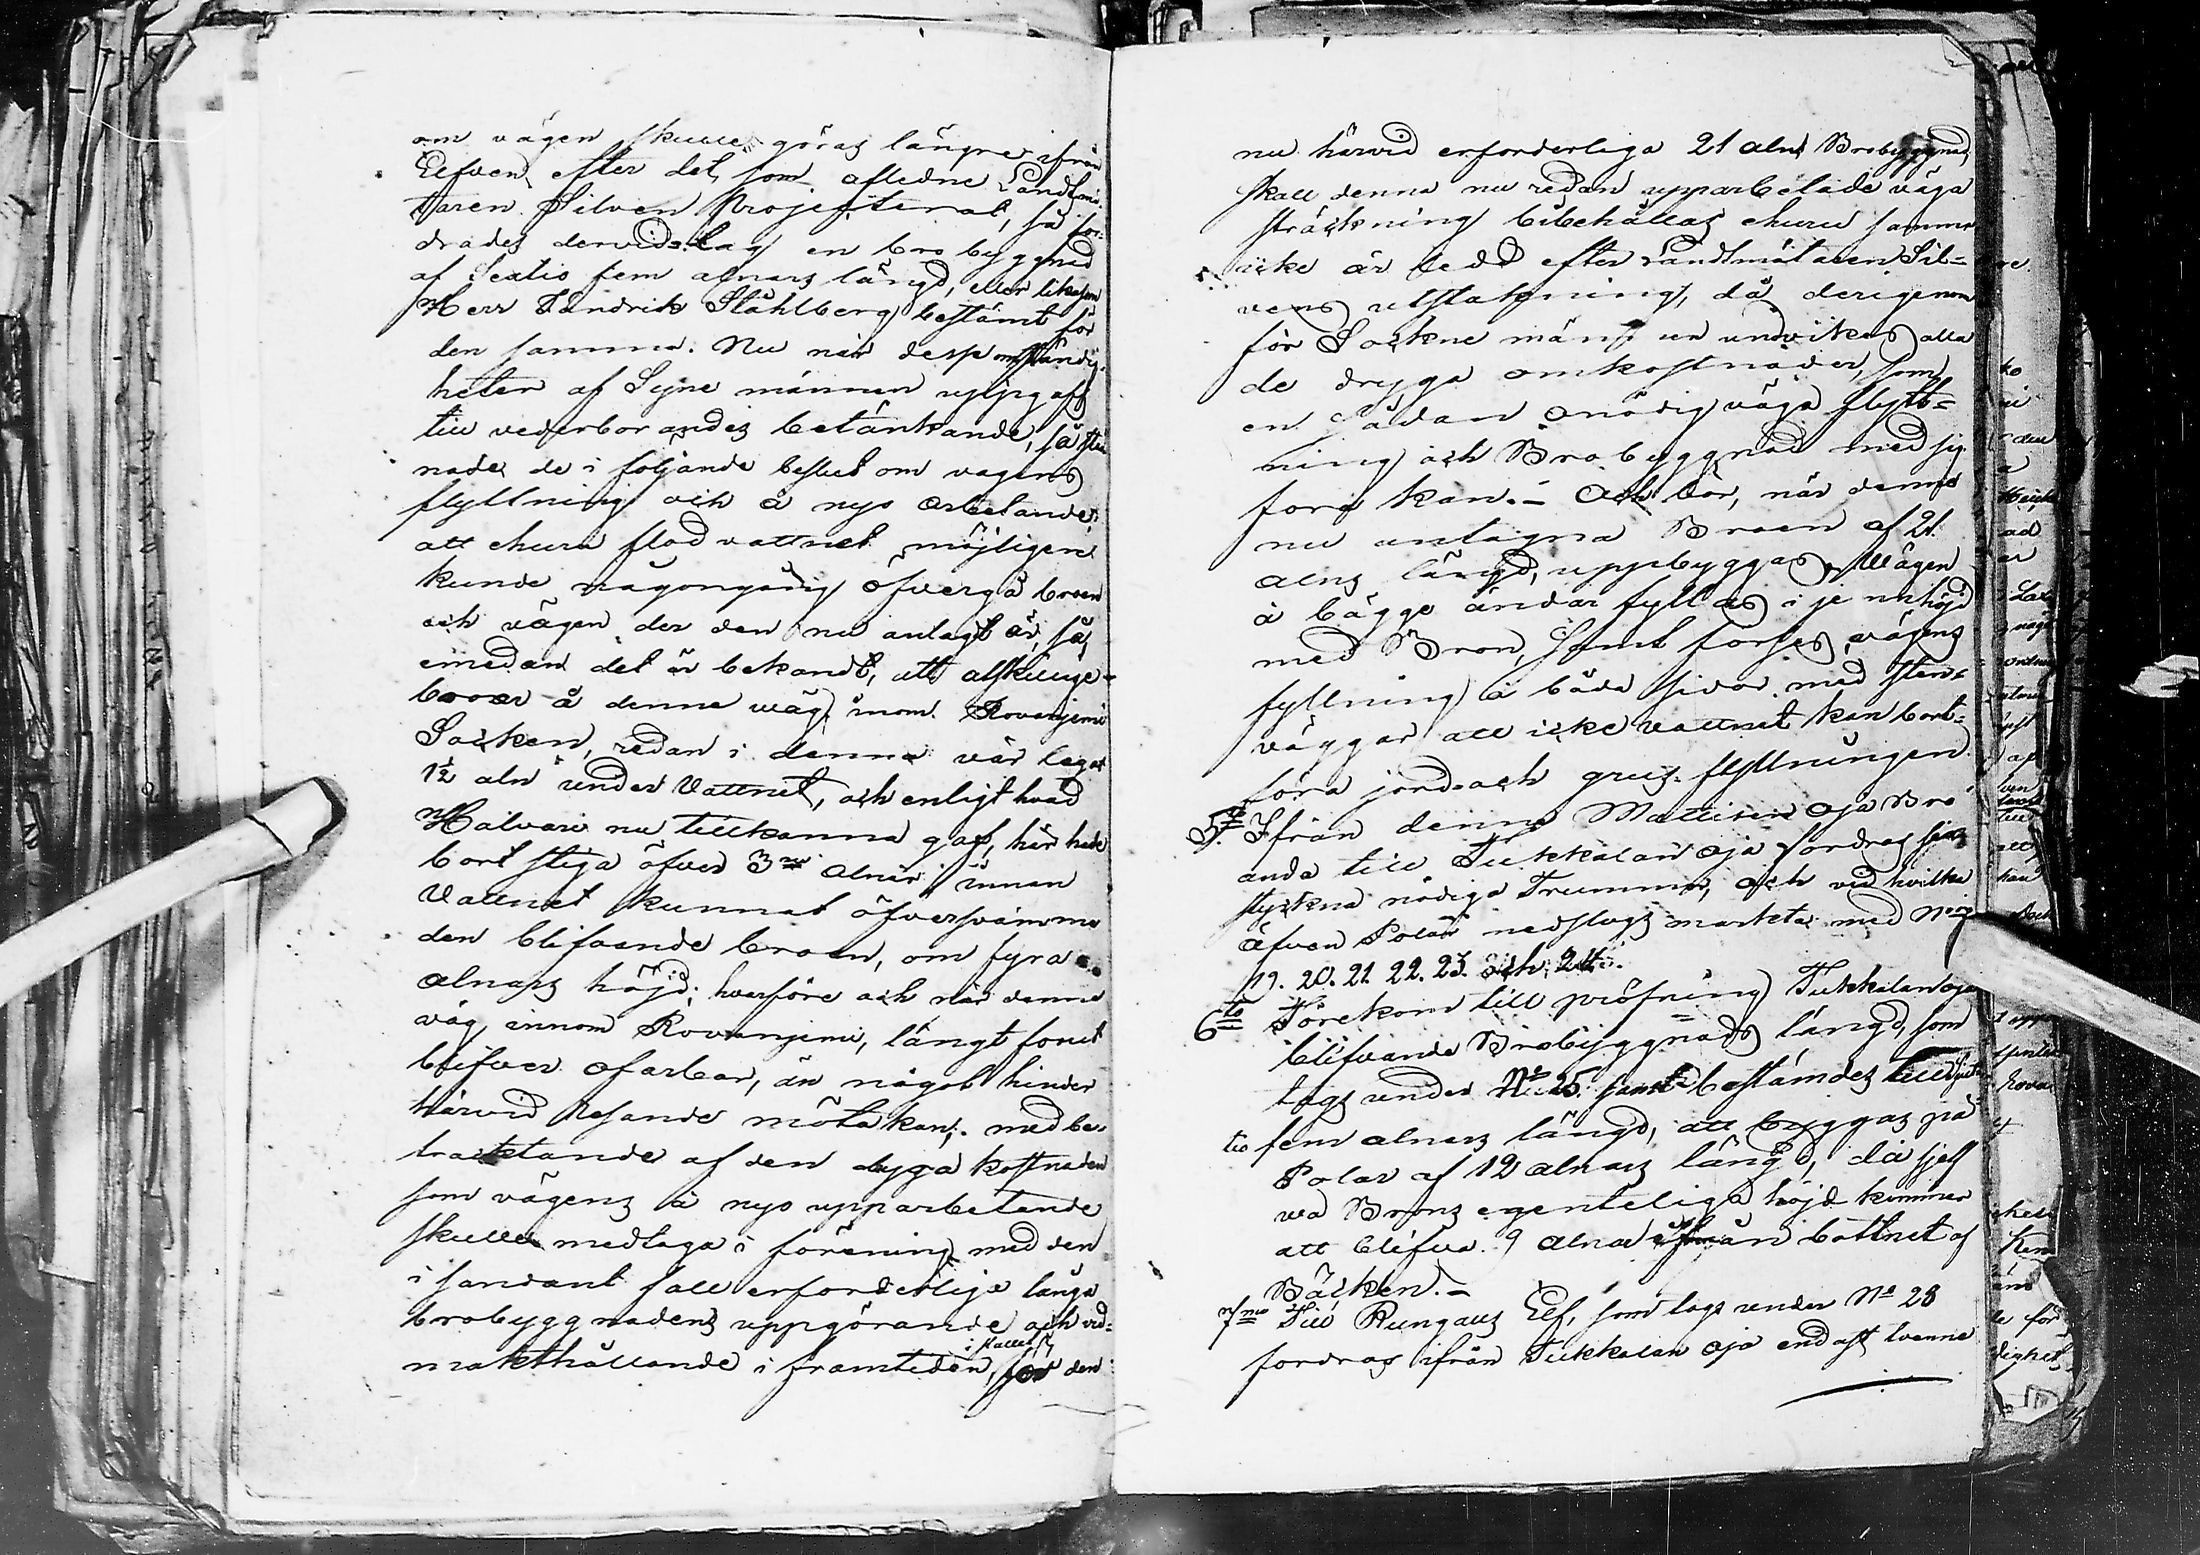 om vägen skulle göras längre ifrån
Elfven, efter det, som afledne Landtmä¬
taren Silven Projecterat, så for¬
drades dervid slag en bro byggnad
af Sextio fem alnars längd, eller likasom
Herr Fändrik Ståhlberg bestämt för
den samma. Nu när desse omständig¬
heter af Syne männen
till vederbörandes betänkande, så
nade, de i följande beslut om vägens
flyttning och å nyo arbetande,
att ehuru flod vattnet möjligen
kunde någongång öfvergå broen
och vägen der den nu anlagt är, så,
emedan det är bekandt, att atskillige
broar å denne wäg inom Rovanjemi
Socken, redan i denna vår legat
1½ aln under Vattnet, och enligt hvad
Halvari nu tillkänna gaf, här hade
bort stiga öfver 3ne alnar innan
Vattnet kunnat öfversvämma
den blifvande broen, om fyra
alnars höjd; hvarföre och när denne
väg innom Rovanjemi, långt förut
blifver ofarbar, än något hinder
härvid Resande möta kan; med be¬
tracktande af den dyga kostnaden
som vägens å nyo upparbetande
skulle medtaga i förening med den
i sandant fall erforderlige långa
brobyggnadens uppgörande och vid¬
makthållande i framtiden, i stället för den
nu härvid erforderliga 21 alns Brobyggnad,
skall denna nu redan upparbetade väga
sträckning bibehållas ehuru samma
icke är ledd efter Landtmätaren Sil=
vens utstakning, då derigenom
för Sockne männen undvikes alla
de dryga omkostnader, som
en sådan onödig väga flytt=
ning och Brobyggnad med sig
föra kan. – Och bör, när denne
nu antagna Broen af 21
alns längd, uppbyggas, Wägen
å bägge ändar fyllas i jemnhöjd
med Bron, samt förses, vägens
fyllning å båda sidor med sten=
väggar att icke vattnet kan bort=
föra jord och grus fyllningen.
5to Ifrån denne Mattisen oja Bro
ända till Tukkalan oja fordras sex
stycken nödiga Trummor, och vid hvilka
äfven Polar nedslogs markta med No
19. 20. 21. 22. 23. och 24.
6to Förekom till pröfning Tukkalan oja
blifvande Brobyggnads längd, som
togs under No 25. samt bestämdes till
tio fem alnars längd, att byggas på
Polar af 12 alnars längd, då sjelf
va Brons egenteliga höjd kommer
att blifva 9 alnar ifrån bottnet af
Bäcken. –
7mo Till Rungaus Elf, som togs under No 28
fordras ifrån Tukkalan oja endast tvenne